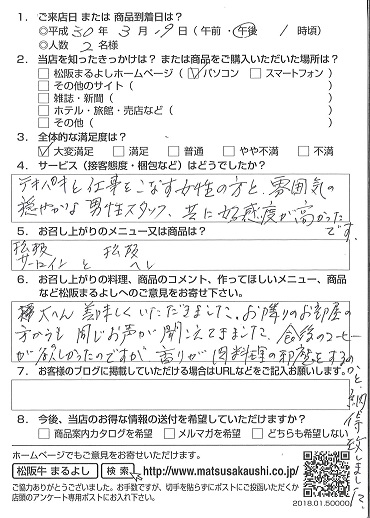 1. ご来店日 または 商品到着日は?
◎平成 30 年 3 月 9 日 (午前・午後 1 時頃)
◎人数 2 名様
2. 当店を知ったきっかけは? または商品をご購入いただいた場所は?
□松阪まるよしホームページ (☑パソコン □スマートフォン)
□その他のサイト( )
□雑誌・新聞( )
□ホテル・旅館・売店など( )
□その他( )
3. 全体的な満足度は?
☑大変満足 □満足 □普通 □やや不満 □不満
4. サービス(接客態度・梱包など)はどうでしたか?
テキパキと仕事をこなす女性の方と、雰囲気の
穏やかな男性スタッフ、共に好感度が高かった
です。
5. お召し上がりのメニュー又は商品は?
松阪 松阪
サーロイン と ヘレ
6. お召し上がりの料理、商品のコメント、作ってほしいメニュー、商品
など松阪まるよしへのご意見をお寄せ下さい。
大へん美味しくいただきました、お隣りのお部屋の
方からも同じお声が聞こえてきました、食後のコーヒー
が欲しかったのですが香りが肉料理の邪魔をするの
かと、納得致しました。
7. お客様のブログに掲載していただける場合はURLなどをご記入お願いします。
8. 今後、当店のお得な情報の送付を希望していただけますか?
□商品案内カタログを希望 □メルマガを希望 □どちらも希望しない
ホームページでもご意見をお寄せいただけます。
松阪牛 まるよし 検索 http://www.matsusakaushi.co.jp/
ご協力ありがとうございました。お手数ですが、切手を貼らずにポストにご投函いただくか
店頭のアンケート専用ポストにお入れ下さい。
2018.01.50000